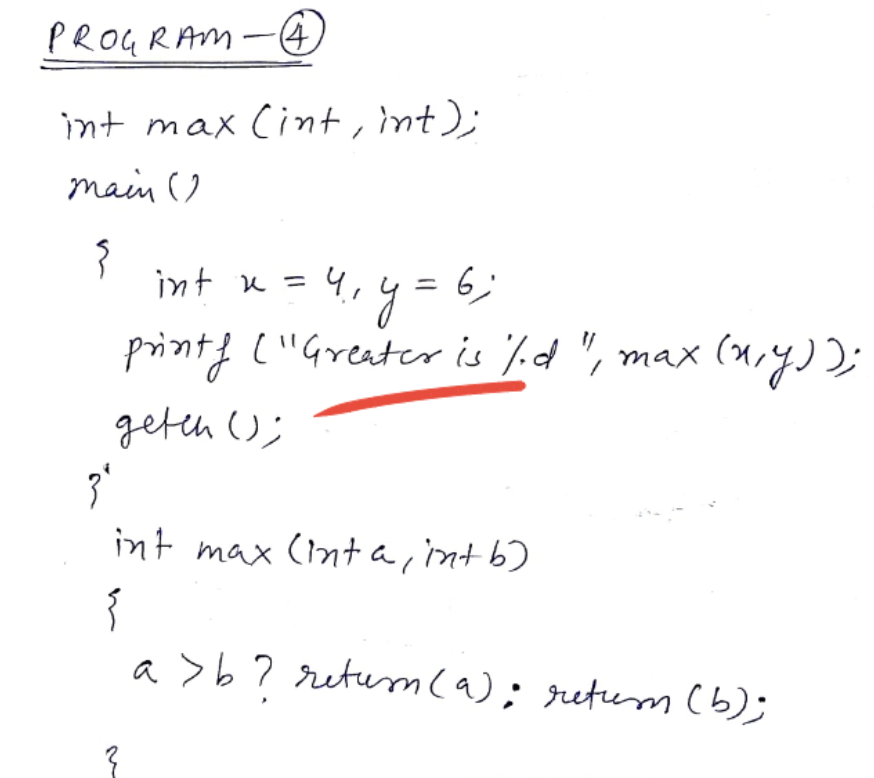 PROGRAM - ④
int max (int, int);
main ()
{
int x = 4, y = 6;
printf ("Greater is %d ", max (x,y));
getch ();
}
int max (int a, int b)
{
a > b ? return (a) : return (b);
}